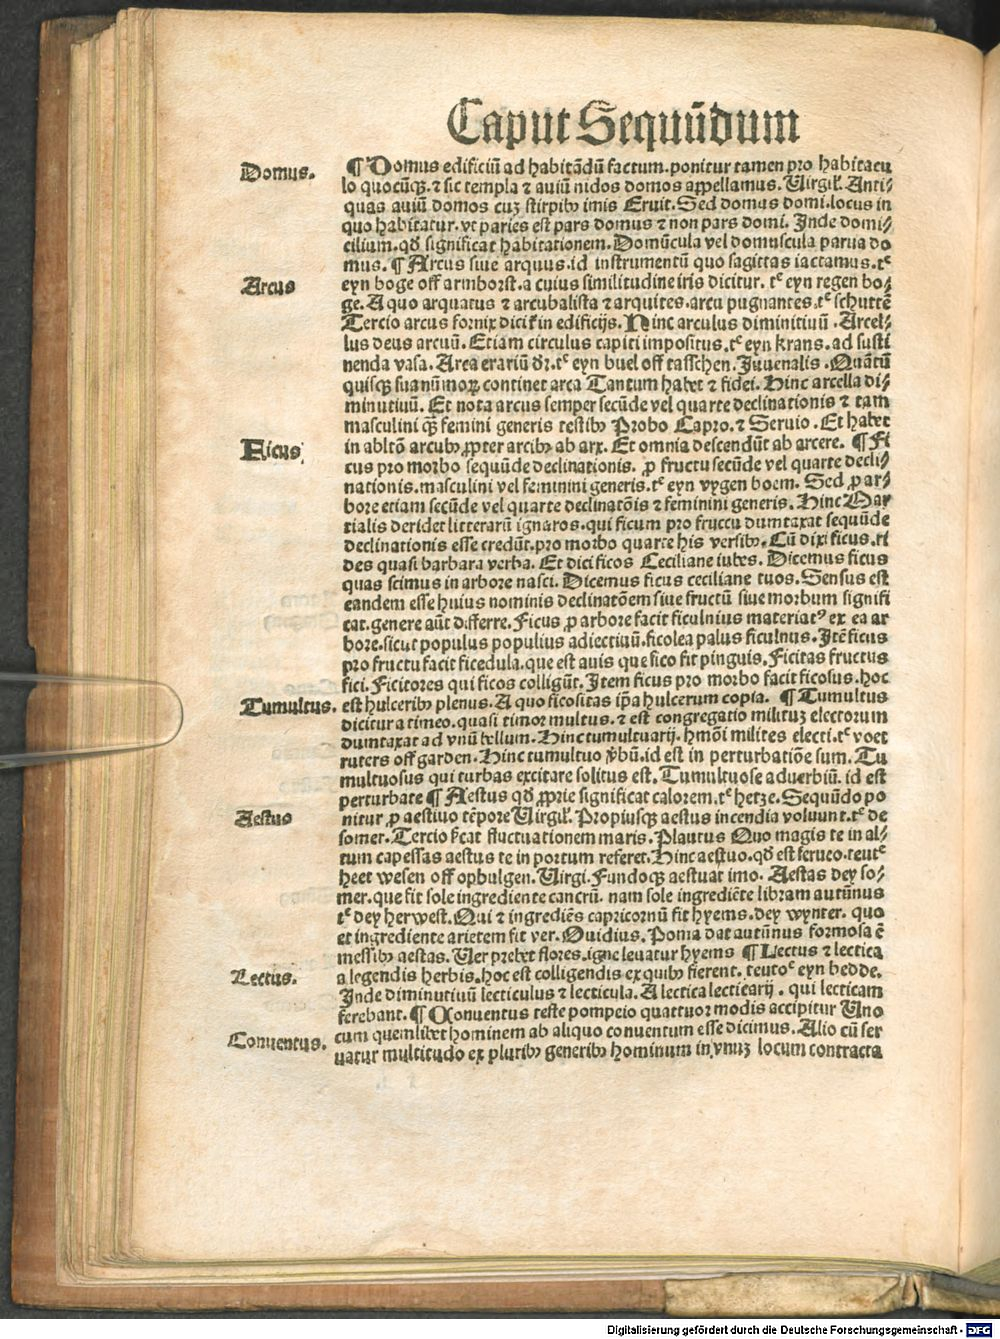 Caput Sequūdum
Domus.
¶ Domus edificiū ad habitādū factum. ponitur tamen pro habitacu
lo quocūqꝫ. ⁊ sic templa ⁊ auiū nidos domos appellamus. Uirgil. Anti⸗
quas auiū domos cuʒ stirpibꝰ imis Eruit. Sed domus domi. locus in
quo habitatur. vt paries est pars domus ⁊ non pars domi. Inde domi⸗
cilium. qđ significat habitationem. Domūcula vel domuscula parua do
Arcus
mus. ¶ Arcus siue arquus. id instrumentū quo sagittas iactamus. tᵉ
eyn boge off armborst. a cuius similitudine iris dicitur. tᵉ eyn regen bo⸗
ge. A quo arquatus ⁊ arcubalista ⁊ arquites. arcu pugnantes. tᵉ schuttē
Tercio arcus fornix dicit̄ in edificijs. Hinc arculus diminitiuū. Arcel⸗
lus deus arcuū. Etiam circulus capiti impositus. tᵉ eyn krans. ad susti
nenda vasa. Arca erariū dr̄. tᵉ eyn buel off tasschen. Juuenalis. Quātū
quisqꝫ sua nūmoꝝ continet arca Tantum habet ⁊ fidei. Hinc arcella di⸗
minutiuū. Et nota arcus semper secūde vel quarte declinationis ⁊ tam
masculini qꝫ femini generis testibꝰ Probo Capro. ⁊ Seruio. Et habet
Ficus
in abltō arcubꝰ ꝓpter arcibꝰ ab arx. Et omnia descendūt ab arcere. ¶ Fi
cus pro morbo sequūde declinationis. ꝓ fructu secūde vel quarte decli⸗
nationis. masculini vel feminini generis. tᵉ eyn vygen boem. Sed ꝓ ar⸗
bore etiam secūde vel quarte declinatōis ⁊ feminini generis. Hinc Mar
tialis deridet litterarū ignaros. qui ficum pro fruccu dumtaxat sequūde
declinationis esse credūt. pro morbo quarte his versibꝰ. Cū dixi ficus. ri
des quasi barbara verba. Et dici ficos Ceciliane iubes. Dicemus ficus
quas scimus in arbore nasci. Dicemus ficus ceciliane tuos. Sensus est
eandem esse huius nominis declinatōem siue fructū siue morbum signifi
cat. genere aūt differre. Ficus ꝓ arbore facit ficulnius materiatꝰ ex ea ar
bore. sicut populus populius adiectiuū. ficolea palus ficulnus. Itē ficus
pro fructu facit ficedula. que est auis que fico fit pinguis. Ficitas fructus
fici. Ficitores qui ficos colligūt. Item ficus pro morbo facit ficosus. hoc
Tumultus.
est hulceribꝰ plenus. A quo ficositas ip̄a hulcerum copia. ¶ Tumultus
dicitur a timeo. quasi timor multus. ⁊ est congregatio milituʒ electorum
dumtaxat ad vnū bellum. Hinc tumultuarij. hmōi milites electi. tᵉ voet
ruters off garden. Hinc tumultuo v̄bū. id est in perturbatiōe sum. Tu
multuosus qui turbas excitare solitus est. Tumultuose aduerbiū. id est
perturbate ¶ Aestus qđ ꝓprie significat calorem. tᵉ hetze. Sequūdo po
Aestus
nitur ꝓ aestiuo tēpore Uirgil. Propiusqꝫ aestus incendia voluunt. tᵉ de
somer. Tercio ſ̄cat fluctuationem maris. Plautus Quo magis te in al⸗
tum capessas aestus te in portum referet. Hinc aestuo. qđ est ferueo. teutᵉ
heet wesen off opbulgen. Uirgi. Fundoqꝫ aestuat imo. Aestas dey so⸗
mer. que fit sole ingrediente cancrū. nam sole ingrediēte libram autūnus
tᵉ dey herwest. Qui ⁊ ingrediēs capricornū fit hyems. dey wynter. quo
et ingrediente arietem fit ver. Ouidius. Poma dat autūnus formosa ē
messibꝰ aestas. Uer prebet flores. igne leuatur hyems ¶ Lectus ⁊ lectica
Lectus.
a legendis herbis. hoc est colligendis ex quibꝰ fierent. teutoᶜ eyn bedde.
Inde diminutiuū lecticulus ⁊ lecticula. A lectica lecticarij. qui lecticam
ferebant. ¶ Conuentus teste pompeio quattuor modis accipitur Uno
Conuentus.
cum quemlibet hominem ab aliquo conuentum esse dicimus. Alio cū ser
uatur multitudo ex pluribꝰ generibꝰ hominum in vnuʒ locum contracta
Digitalisierung gefördert durch die Deutsche Forschungsgemeinschaft - DFG